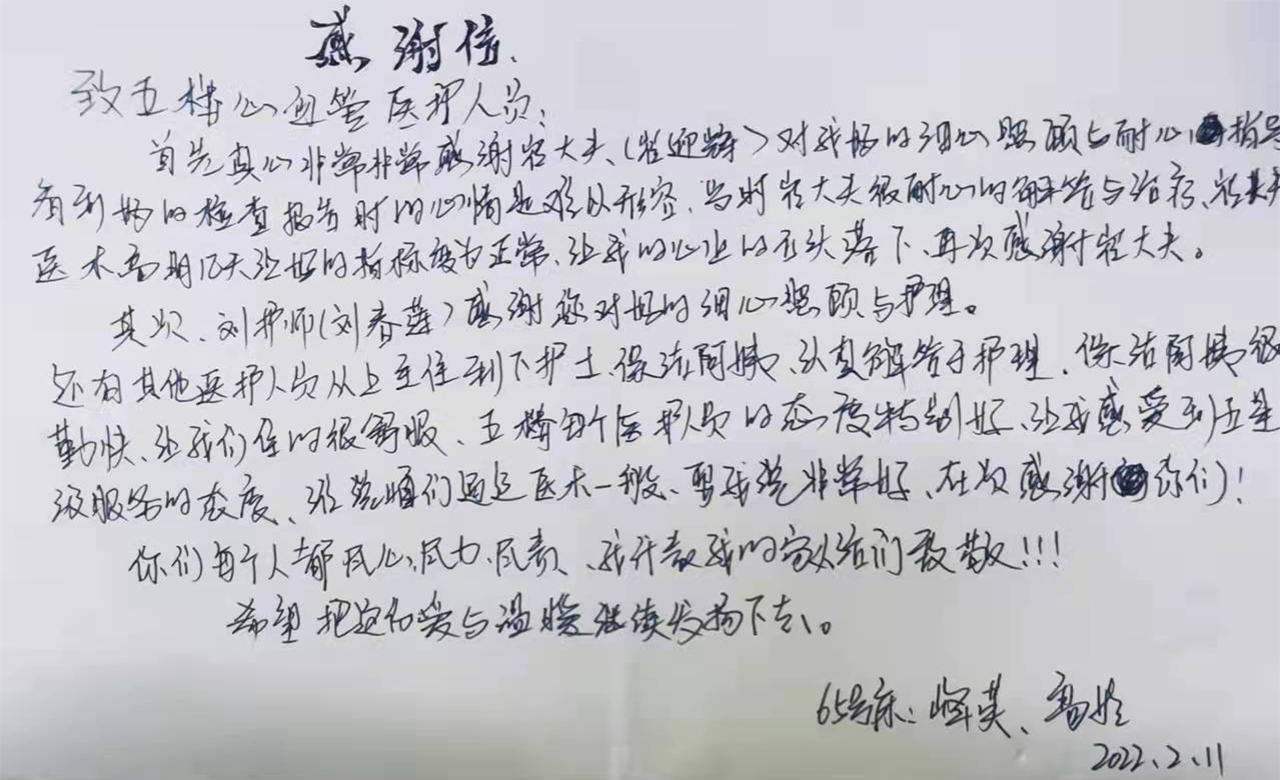 感谢信.
致五楼心血管医护人员:
首先真心非常非常感谢程大夫、(程迎)对我妈的细心照顾与耐心指导
看到妈的检查报告时的心情是难以形容,当时程大夫很耐心的解答与治疗、程大夫
医术高明几天让妈的指标变为正常,让我的心上的石头落下、再次感谢程大夫。
其次、刘护师(刘春莲)感谢您对妈的细心照顾与护理。
还有其他医护人员从上主任到下护士、保洁阿姨、认真解答于护理,保洁阿姨很
勤快、让我们住的很舒服、五楼每个医护人员的态度特别好、让我感受到五星
级服务的态度、谁说咱们通辽医术一般、要我说非常好、在次感谢你们!
你们每个人都尽心,尽力、尽责、我代表我的家人给们致敬!!!
希望把这份爱与温暖继续发扬下去、。
65号床:英、高
2022、2、11